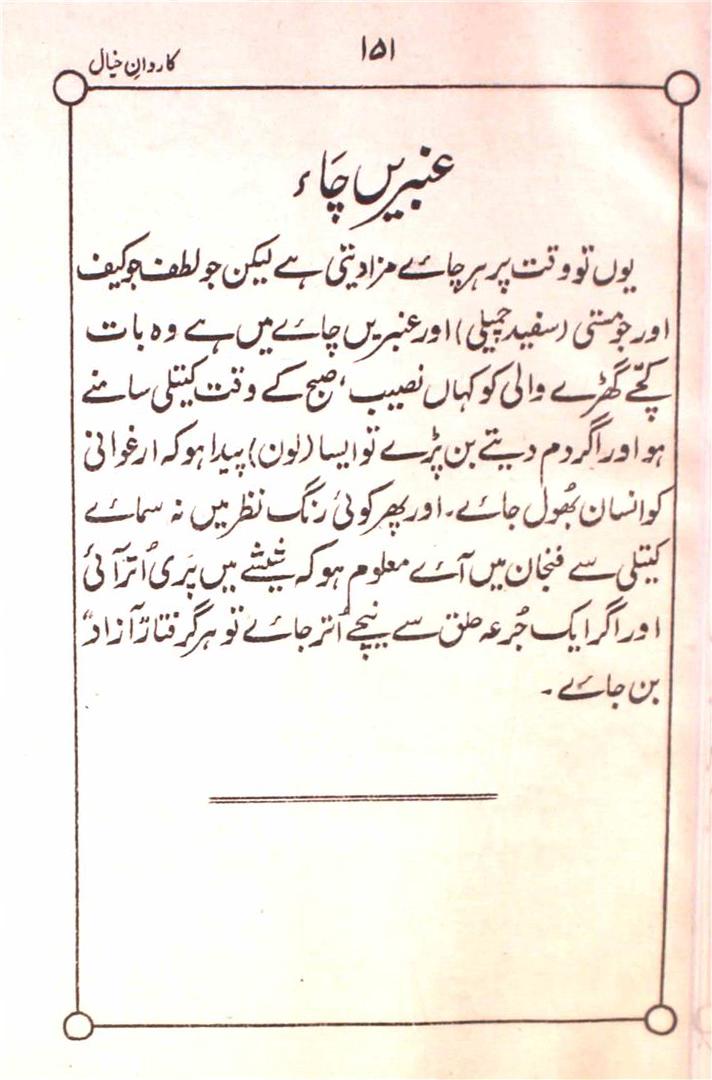 ۱۵۱
کاروانِ خیال
عنبریں چاء
یوں تو وقت پر ہر چائے مزا دیتی ہے لیکن جو لطف جو کیف
اور جو مستی (سفید چمیلی) اور عنبریں چائے میں ہے وہ بات
کچّے گھڑے والی کو کہاں نصیب، صبح کے وقت کیتلی سامنے
ہو اور اگر دم دیتے بن پڑے تو ایسا (لون) پیدا ہو کہ ارغوانی
کو انسان بھُول جائے۔ اور پھر کوئی رنگ نظر میں نہ سمائے
کیتلی سے فنجان میں آئے معلوم ہو کہ شیشے میں پَری اُتر آئی
اور اگر ایک جُرعہ حلق سے نیچے اُتر جائے تو ہر گرفتار "آزاد"
بن جائے۔